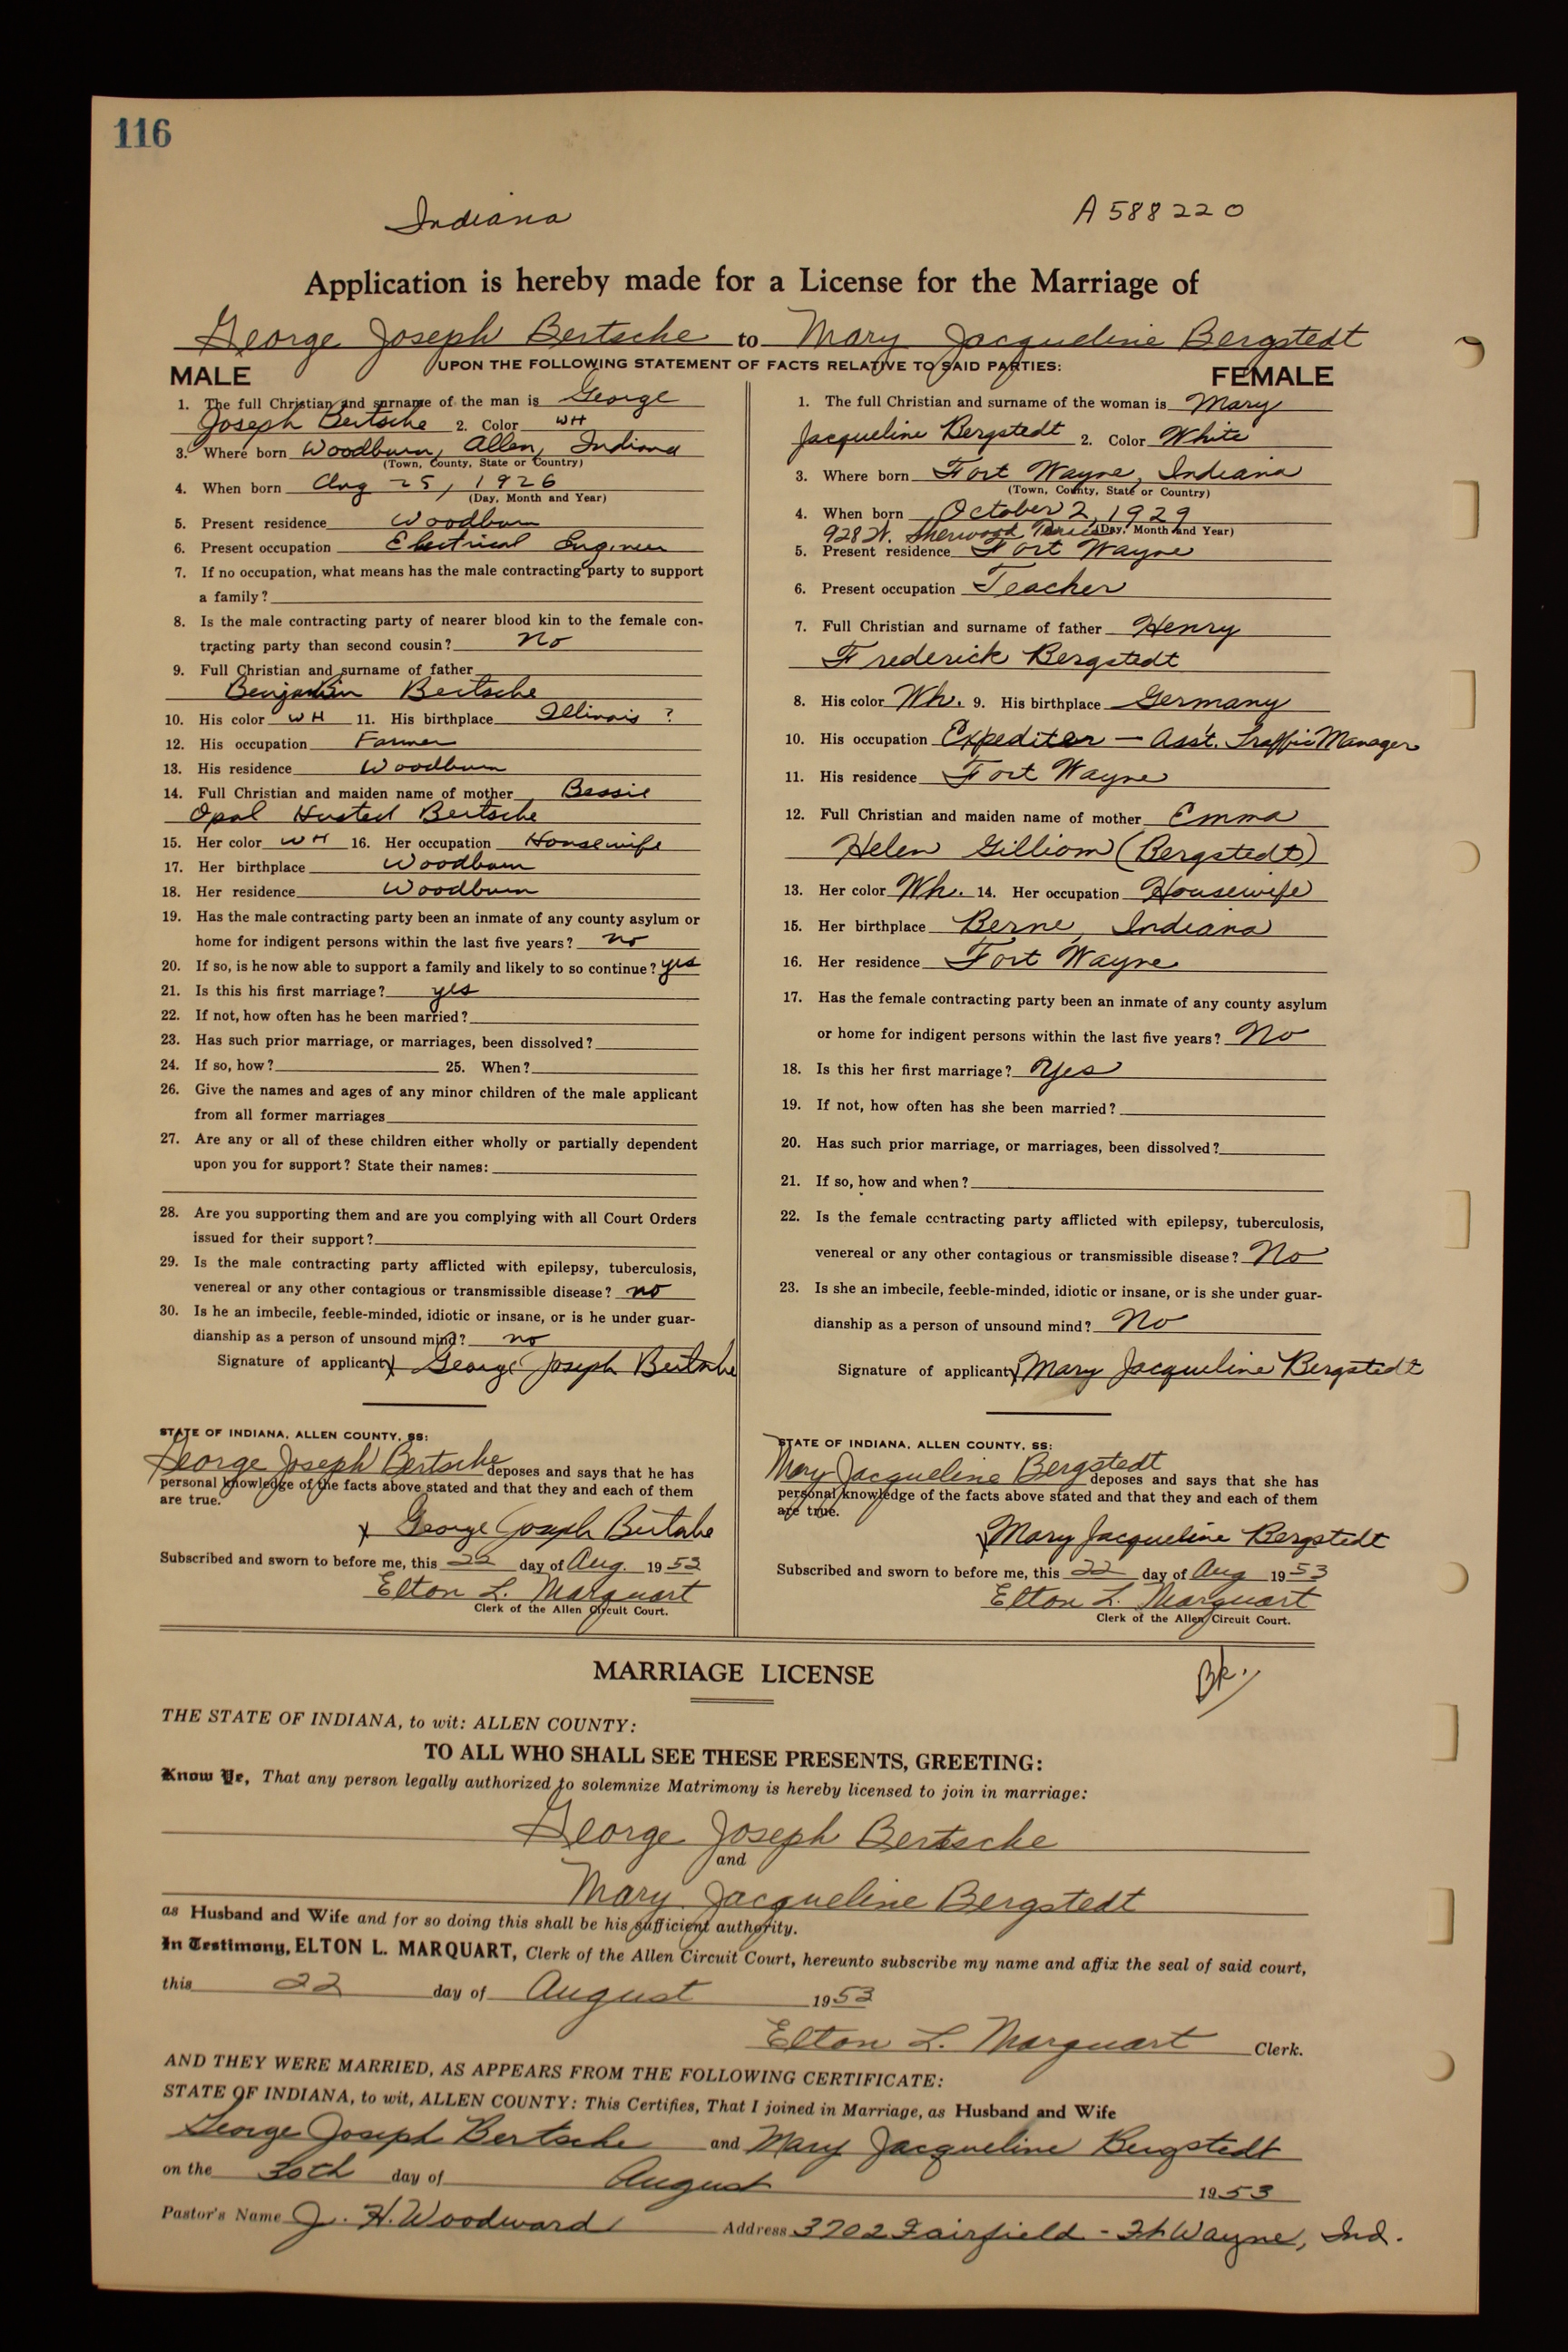 116
Indiana
A588220
Application is hereby made for a License for the Marriage of
George Joseph Bertsche to Mary Jacqueline Bergstedt
UPON THE FOLLOWING STATEMENT OF FACTS RELATIVE TO SAID PARTIES:
MALE
1. The full Christian and surname of the man is George
Joseph Bertsche 2. Color WH
3. Where born Woodburn, Allen, Indiana
(Town, County, State or Country)
4. When born Aug 25, 1926
(Day, Month and Year)
5. Present residence Woodburn
6. Present occupation Electrical Engineer
7. If no occupation, what means has the male contracting party to support
a family?
8. Is the male contracting party of nearer blood kin to the female con-
tracting party than second cousin? No
9. Full Christian and surname of father
Benjamin Bertsche
10. His color WH 11. His birthplace Illinois ?
12. His occupation Farmer
13. His residence Woodburn
14. Full Christian and maiden name of mother Bessie
Opal Husted Bertsche
15. Her color WH 16. Her occupation Housewife
17. Her birthplace Woodburn
18. Her residence Woodburn
19. Has the male contracting party been an inmate of any county asylum or
home for indigent persons within the last five years? no
20. If so, is he now able to support a family and likely to so continue? yes
21. Is this his first marriage? yes
22. If not, how often has he been married?
23. Has such prior marriage, or marriages, been dissolved?
24. If so, how? 25. When?
26. Give the names and ages of any minor children of the male applicant
from all former marriages
27. Are any or all of these children either wholly or partially dependent
upon you for support? State their names:
28. Are you supporting them and are you complying with all Court Orders
issued for their support?
29. Is the male contracting party afflicted with epilepsy, tuberculosis,
venereal or any other contagious or transmissible disease? no
30. Is he an imbecile, feeble-minded, idiotic or insane, or is he under guar-
dianship as a person of unsound mind? no
Signature of applicant x George Joseph Bertsche
STATE OF INDIANA, ALLEN COUNTY, SS:
George Joseph Bertsche deposes and says that he has
personal knowledge of the facts above stated and that they and each of them
are true.
x George Joseph Bertsche
Subscribed and sworn to before me, this 22 day of Aug. 1953
Elton L. Marquart
Clerk of the Allen Circuit Court.
FEMALE
1. The full Christian and surname of the woman is Mary
Jacqueline Bergstedt 2. Color White
3. Where born Fort Wayne, Indiana
(Town, County, State or Country)
4. When born October 2, 1929
928 W. Sherwood (Day, Month and Year)
5. Present residence Fort Wayne
6. Present occupation Teacher
7. Full Christian and surname of father Henry
Frederick Bergstedt
8. His color Wh. 9. His birthplace Germany
10. His occupation Expediter — Ass't. Traffic Manager
11. His residence Fort Wayne
12. Full Christian and maiden name of mother Emma
Helen Gilliom (Bergstedt)
13. Her color Wh. 14. Her occupation Housewife
15. Her birthplace Berne, Indiana
16. Her residence Fort Wayne
17. Has the female contracting party been an inmate of any county asylum
or home for indigent persons within the last five years? No
18. Is this her first marriage? Yes
19. If not, how often has she been married?
20. Has such prior marriage, or marriages, been dissolved?
21. If so, how and when?
22. Is the female contracting party afflicted with epilepsy, tuberculosis,
venereal or any other contagious or transmissible disease? No
23. Is she an imbecile, feeble-minded, idiotic or insane, or is she under guar-
dianship as a person of unsound mind? No
Signature of applicant x Mary Jacqueline Bergstedt
STATE OF INDIANA, ALLEN COUNTY, SS:
Mary Jacqueline Bergstedt deposes and says that she has
personal knowledge of the facts above stated and that they and each of them
are true.
x Mary Jacqueline Bergstedt
Subscribed and sworn to before me, this 22 day of Aug 1953
Elton L. Marquart
Clerk of the Allen Circuit Court.
MARRIAGE LICENSE
THE STATE OF INDIANA, to wit: ALLEN COUNTY:
TO ALL WHO SHALL SEE THESE PRESENTS, GREETING:
Know Ye, That any person legally authorized to solemnize Matrimony is hereby licensed to join in marriage:
George Joseph Bertsche
and
Mary Jacqueline Bergstedt
as Husband and Wife and for so doing this shall be his sufficient authority.
In Testimony, ELTON L. MARQUART, Clerk of the Allen Circuit Court, hereunto subscribe my name and affix the seal of said court,
this 22 day of August 1953
Elton L. Marquart Clerk.
AND THEY WERE MARRIED, AS APPEARS FROM THE FOLLOWING CERTIFICATE:
STATE OF INDIANA, to wit, ALLEN COUNTY: This Certifies, That I joined in Marriage, as Husband and Wife
George Joseph Bertsche and Mary Jacqueline Bergstedt
on the 30th day of August 1953
Pastor's Name J. H. Woodward Address 3702 Fairfield - Ft Wayne, Ind.